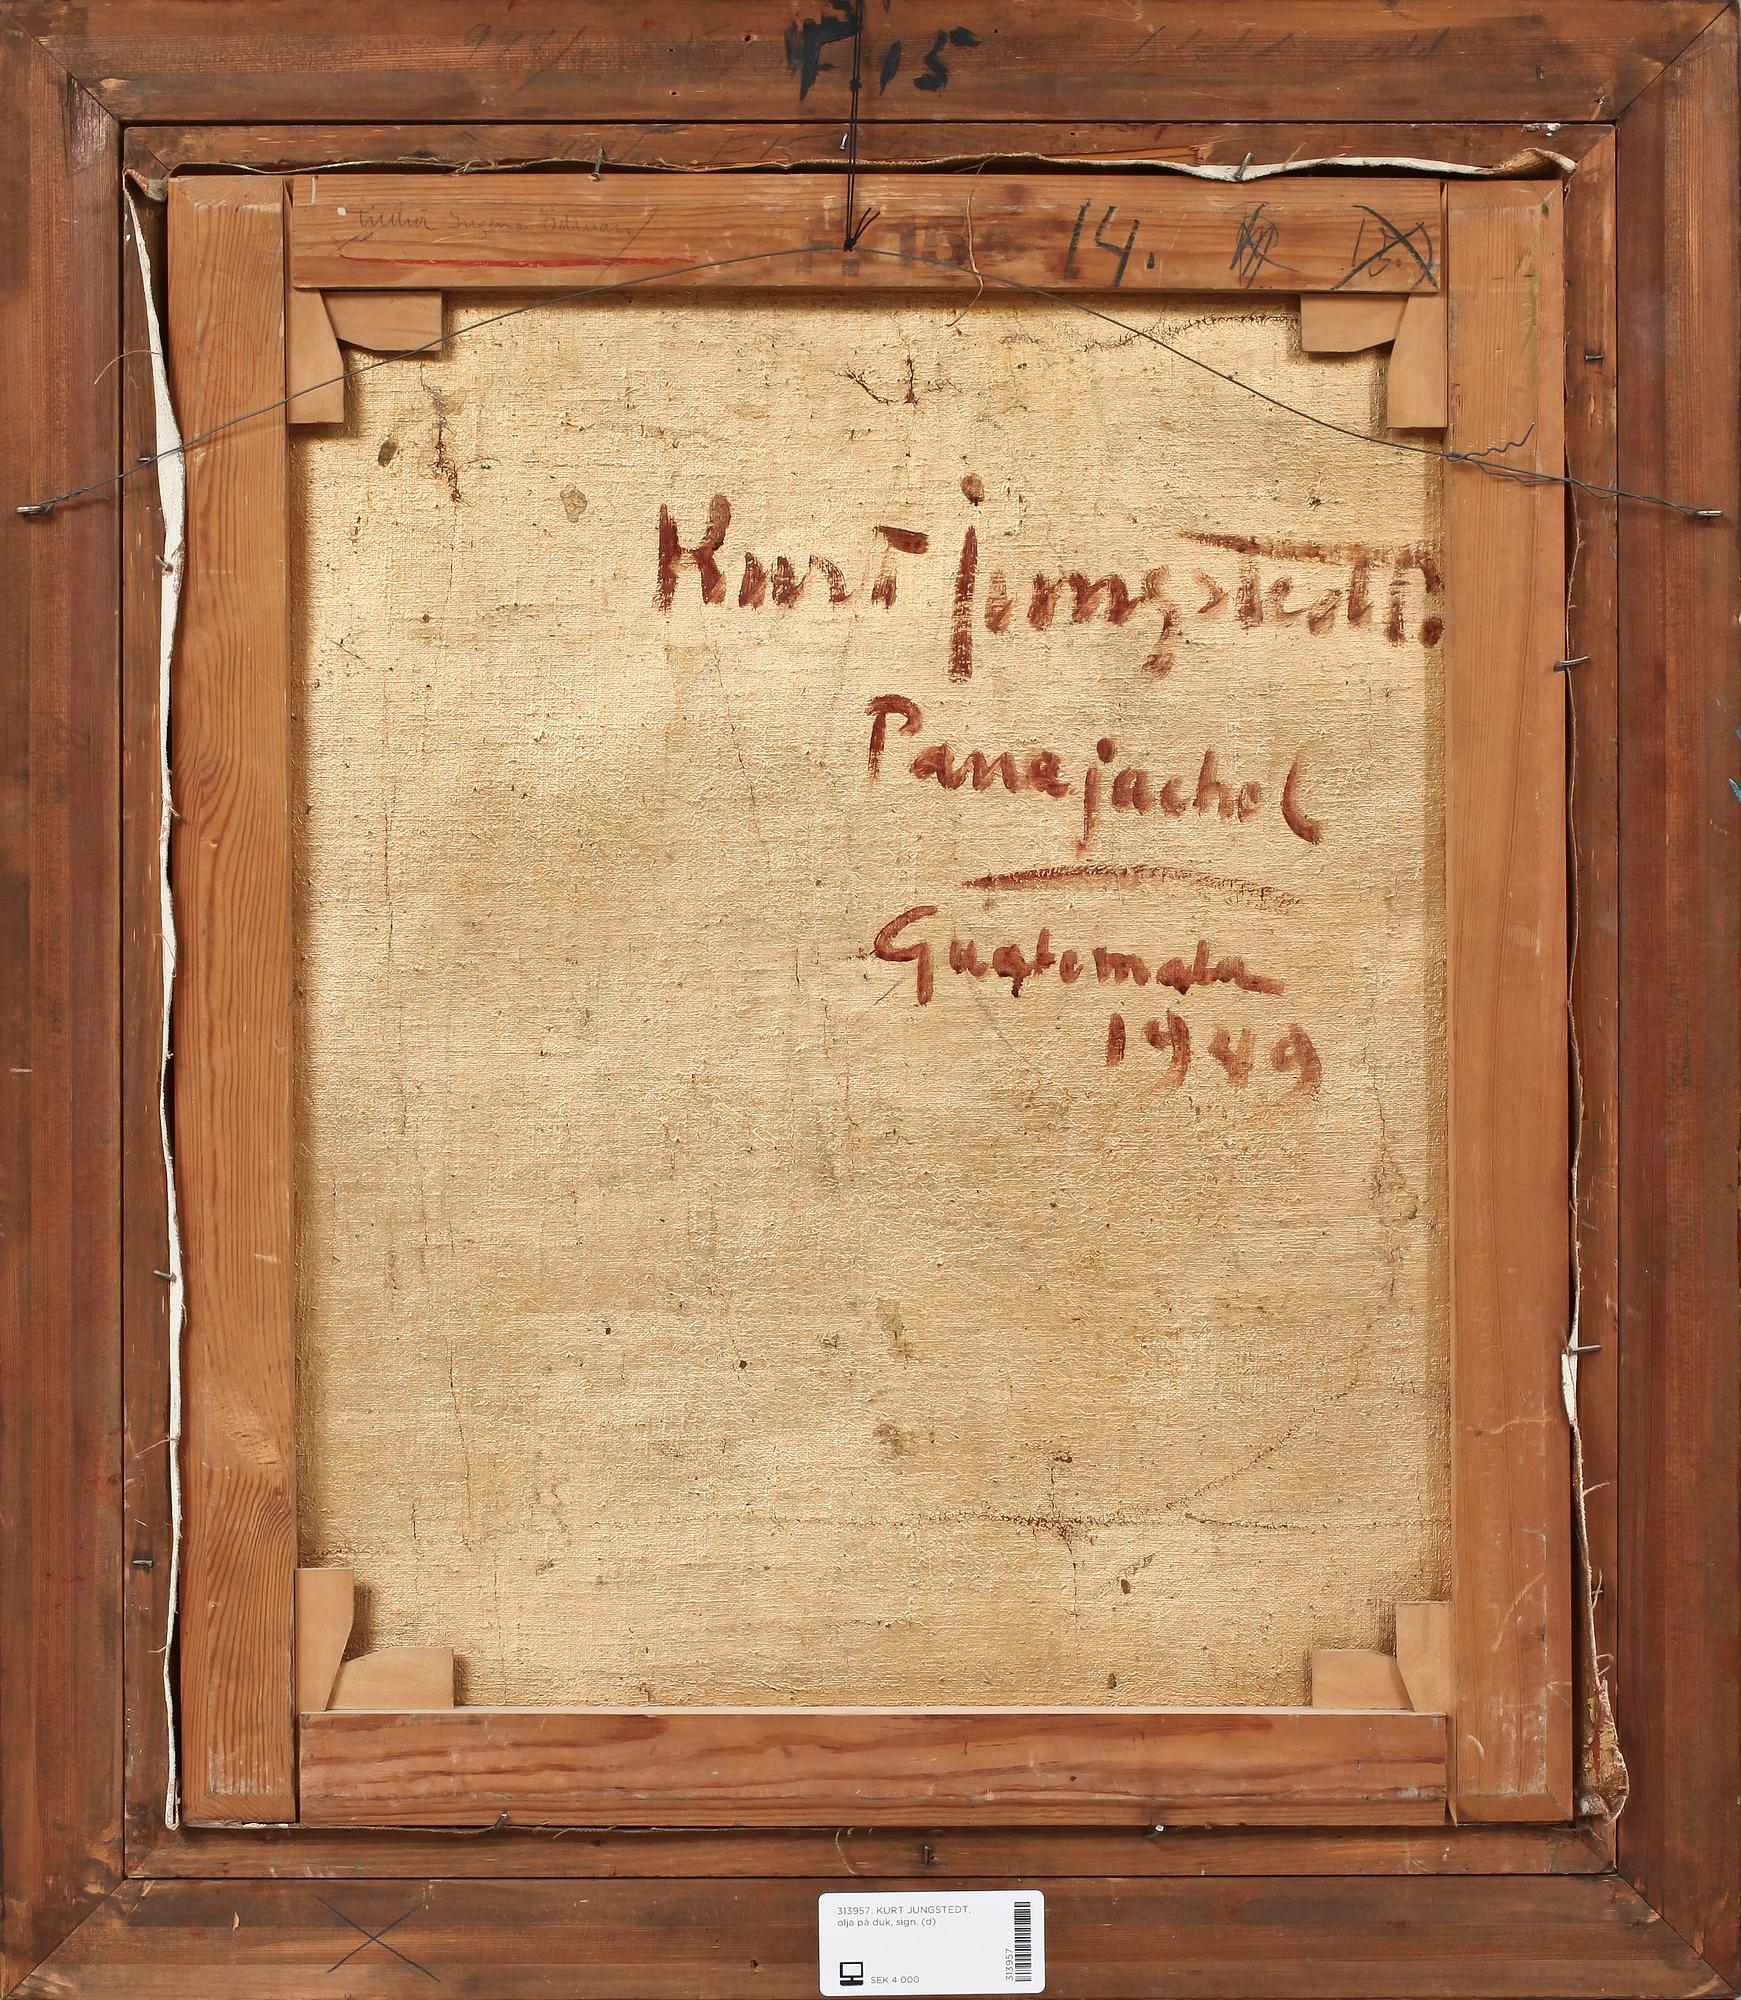 F 15
F 15
14.
Kurt Jungstedt.
Panajachel
Guatemala
1949
313957. KURT JUNGSTEDT,
olja på duk, sign. (d)
SEK 4 000
313957